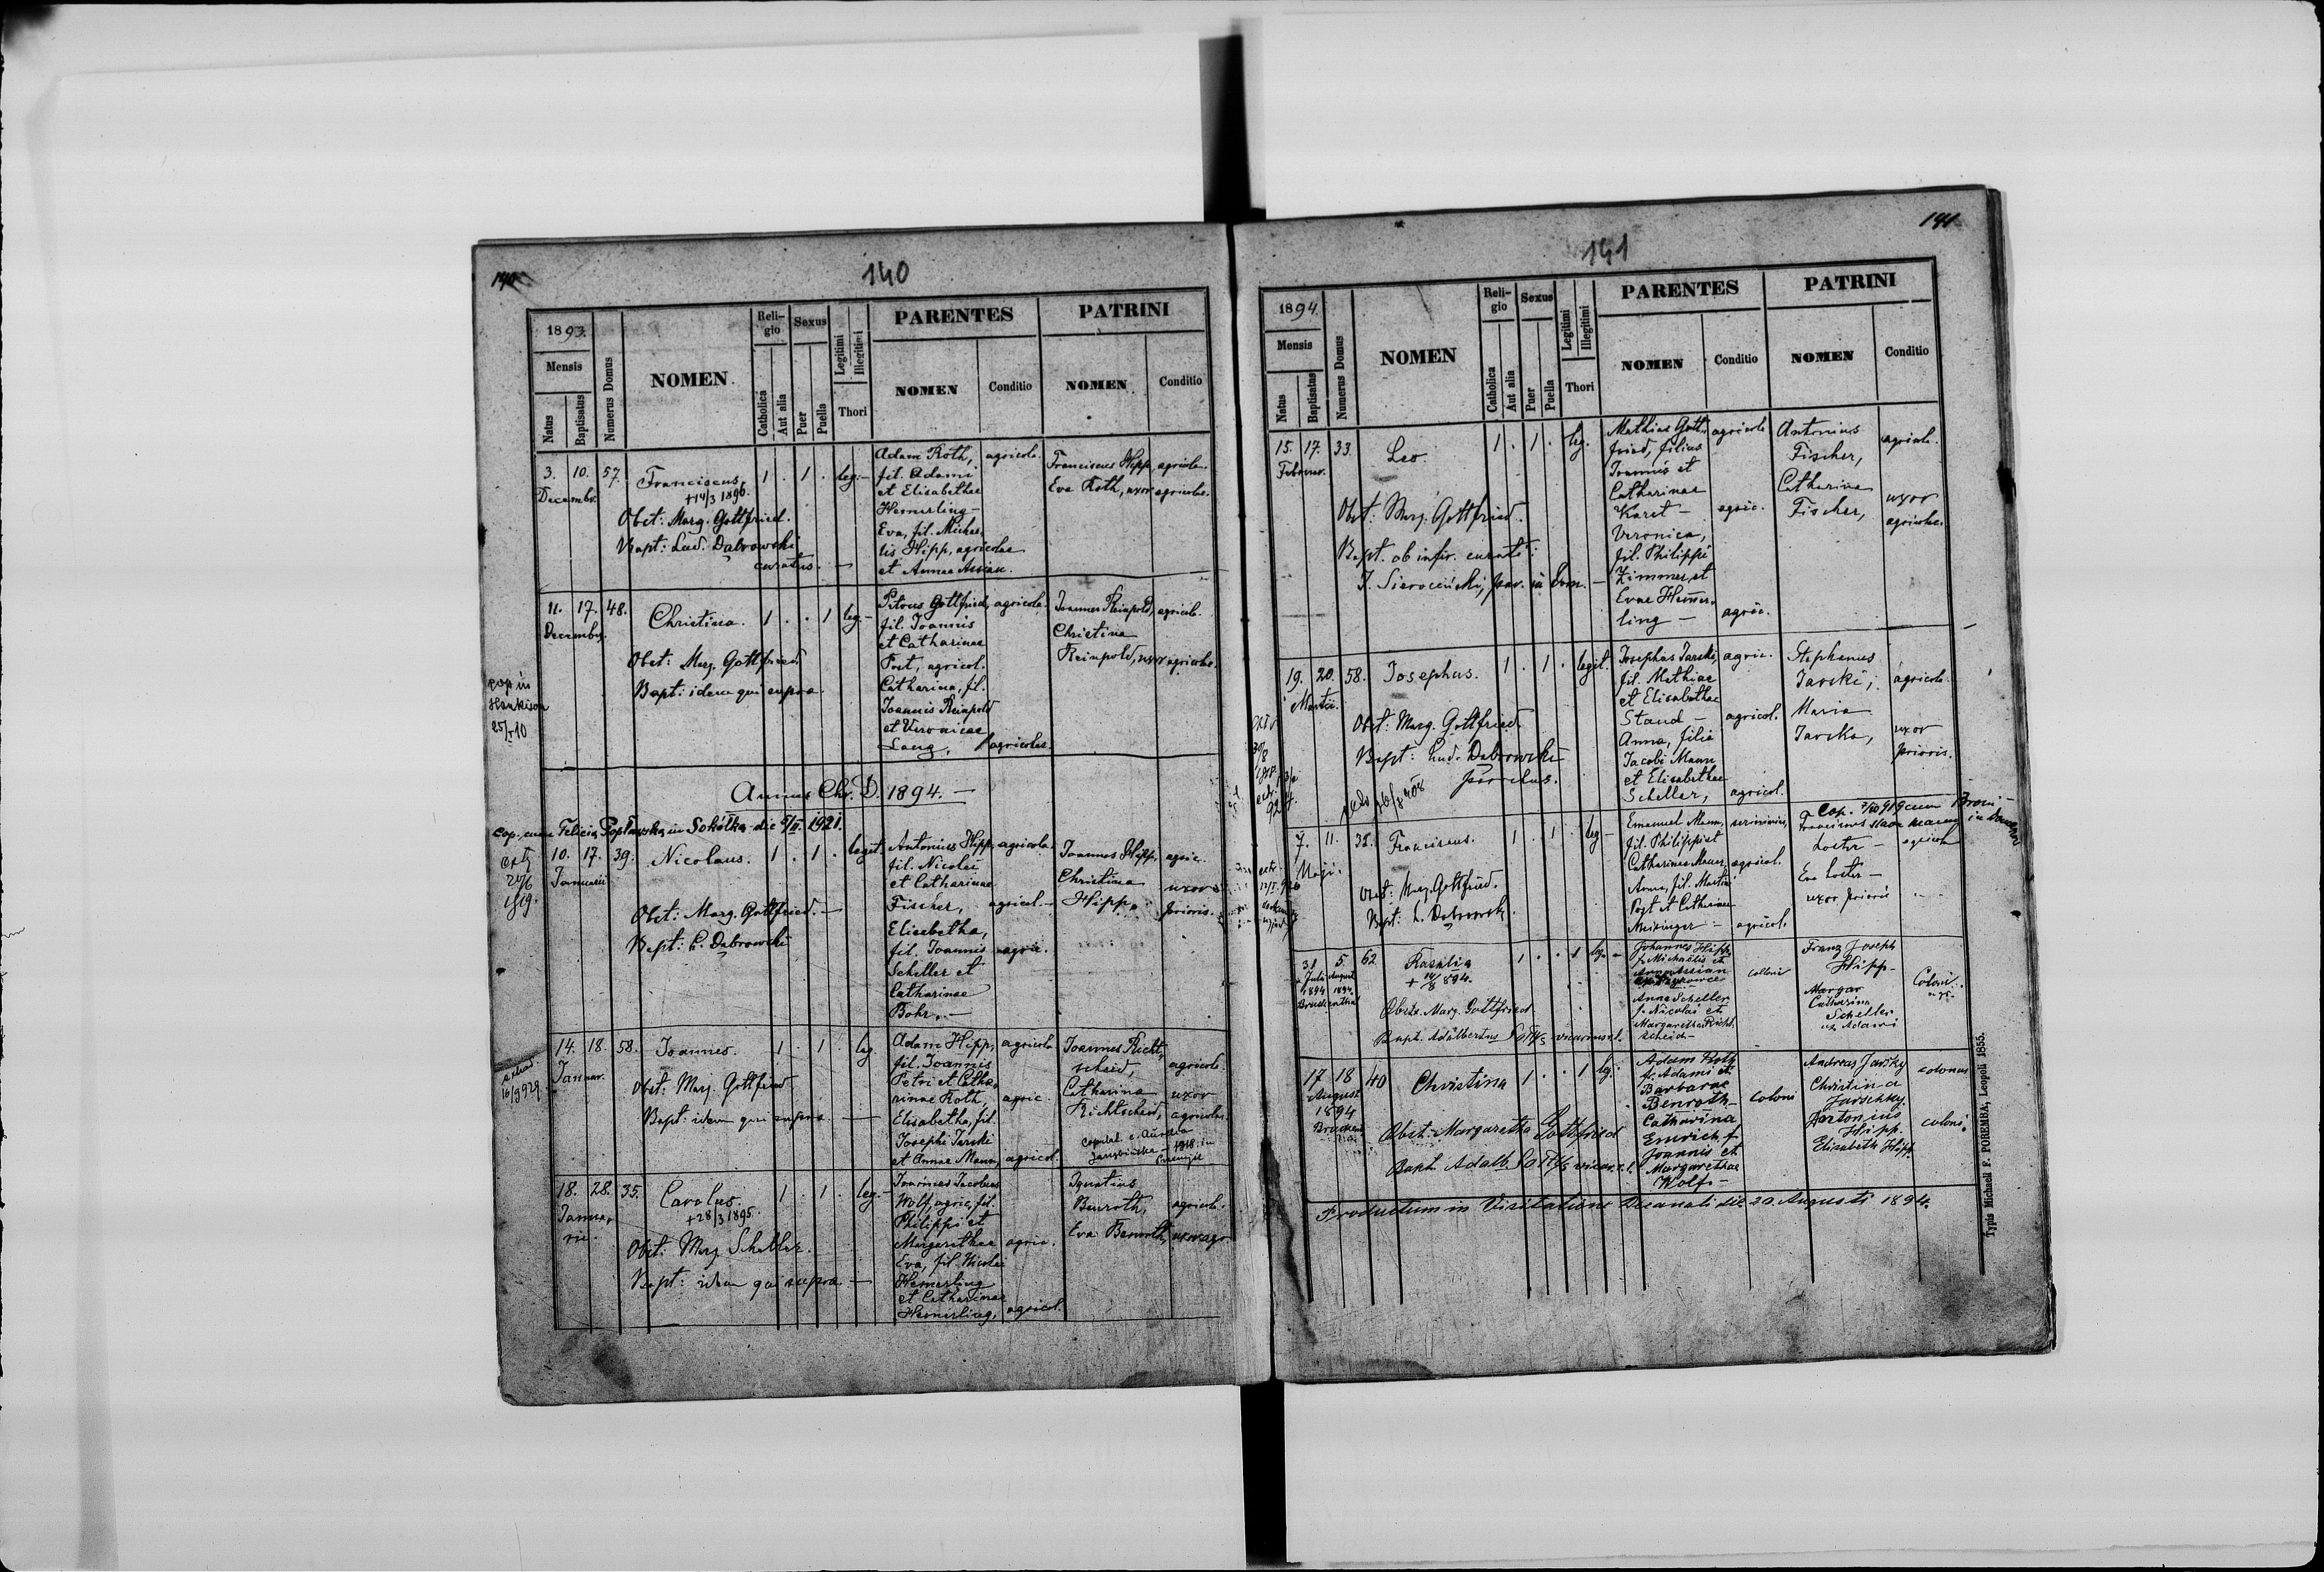 140
1893.
Mensis
Natus
Baptisatus
Numerus Domus
NOMEN
Religio
Catholica
Aut alia
Sexus
Puer
Puella
Legitimi
Illegitimi
Thori
PARENTES
NOMEN
Conditio
PATRINI
NOMEN
Conditio
3. 10. 57. Franciscus, 1 . 1 . leg:-
Decembr.
+14/3 1896.
Obst: Marg. Gottfried.
Bapt: Lud. Dąbrowski
curatus. —
Adam Roth, agricola.
fil. Adami
et Elisabethae
Hemerling -
Eva, fil. Michae
lis Hipp, agricolae
et Annae Assian.
Franciscus Hipp, agricola.
Eva Roth, uxor agricolae.
11. 17. 48. Christina. 1 . . 1 leg:-
Decembr.
Obst: Marg. Gottfried.
Bapt: idem qui supra.
cop. in
25/I 10
Petrus Gottfried, agricola.
fil. Joannis
et Catharinae
Post, agricol.
Catharina, fil.
Joannis Reinpold
et Veronicae
Lang, agricolae.
Joannes Reinpold, agricola.
Christina
Reinpold, uxor agricolae.
Annus Chr. D. 1894. —
cop. cum Felicia Popławska in Sokółka die 5/II. 1921.
10. 17. 39. Nicolaus. 1 . 1 . legit.
Januarii
Obst: Marg. Gottfried. —
Bapt: L. Dąbrowski
Antonius Hipp, agricola.
fil. Nicolai
et Catharinae
Fischer, agricol. -
Elisabetha,
fil. Joannis agric.
Scheller et
Catharinae
Bohr. -
Joannes Hipp, agric.
Christina uxor
Hipp. prioris.
14. 18. 58. Joannes. 1 . 1 . leg.
Januar.
Obst: Marg. Gottfried
Bapt: idem qui supra. —
Adam Hipp, agricola
fil. Joannis
Petri et Catha
rinae Roth, agric.
Elisabetha, fil.
Josephi Jarski
et Annae Mann, agricol.
Joannes Richt
scheid, agricola.
Catharina uxor
Richtscheid, agricolae.
18. 28. 35. Carolus. 1 . 1 . leg.-
Janua
rii.
+28/3 1895.
Obst: Marg. Scheller.
Bapt: idem qui supra. —
Joannes Jacobus
Wolf, agric, fil.
Philippi et
Margarethae agric.
Eva, fil. Nicolai
Hemerling
et Catharinae
Hemerling, agricol.
Ignatius
Benroth, agricola.
Eva Benroth, uxor agr.
141
141
1894.
Mensis
Natus
Baptisatus
Numerus Domus
NOMEN
Religio
Catholica
Aut alia
Sexus
Puer
Puella
Legitimi
Illegitimi
Thori
PARENTES
NOMEN
Conditio
PATRINI
NOMEN
Conditio
15. 17. 33. Leo. 1 . 1 . leg.
Februar.
Obst: Marg. Gottfried.
Bapt. ob infir. curati:
J. Sierociński, par. in Dorn. —
Mathias Gott agricola
fried, filius
Joannis et
Catharinae
Karet - agric.
Veronica,
fil. Philippi
Zimmer, et
Evae Hemer
ling - agric.
Antonius agricola.
Fischer,
Catharina uxor
Fischer, agricolae.
19. 20. 58. Josephus. 1 . 1 . legit.
Martii.
Obst: Marg. Gottfried.
Bapt: Lud. Dąbrowski
parochus.
Josephus Jarski, agric.
fil. Mathiae
et Elisabethae
Staud - agricol.
Anna, filia
Jacobi Mann
et Elisabethae
Scheller, agricol.
Stephanus
Jarski, agricola
Maria
Jarska, uxor
prioris.
7. 11. 32. Franciscus. 1 . 1 . leg -
Maji.
Obst: Marg. Gottfried.
Bapt: L. Dąbrowski.
Emanuel Mann,
fil. Philippi et
Catharinae Mauer, agricol.
Anna, fil. Martini
Post et Catharinae
Meisinger - agricol.
Franciscus
Loster - agricola
Eva Loster -
uxor prioris
31 5. 62. Rosalia 1 . . 1 leg -
Julii August
1894 1894.
Bruckenthal
+ 14/8 894.
Obstx. Marg. Gottfried
Bapt. Adalbertus vicarius r.l.
Johannes Hipp
f. Michaelis et
Anna Assian
coloni
Anna Scheller
f. Nicolai et
Margaretha Richt
scheid -
Franz Joseph
Hipp -
Margar
Catharina
Scheller
ux Adami
Coloni.
17 18 40 Christina 1 . . 1 leg.
August
1894
Obst. Margaretha Gottfried
Bapt. Adalb. vicar. r.l.
Adam Roth
f. Adami et
Barbarae
Benroth coloni
Catharina
Emrich f.
Joannis et
Margarethae
Wolf -
Andreas Jarsky colonus
Christina
Jarschky
Antonius
Hipp. coloni.
Elisabeth Hipp.
Productum in Visitatione Decanali die 20 Augusti 1894.
Typis Michaeli F. POREMBA, Leopoli 1855.